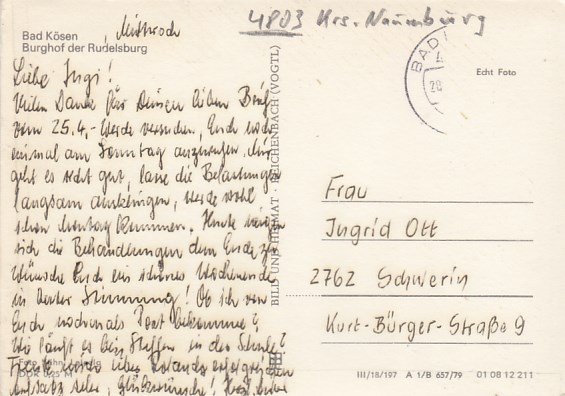 Bad Kösen
Burghof der Rudelsburg
Mittwoch
4803 Krs. Naumburg
BAD
4
28
Echt Foto
Liebe Ingi!
Vielen Dank für Deinen lieben Brief
vom 25.4,- Werde versuchen, Euch noch
einmal am Sonntag anzurufen. Mir
geht es recht gut, lasse die Belastungen
langsam ausklingen, werde wohl
schon Montag kommen. Heute neigen
sich die Behandlungen dem Ende zu
Wünsche Euch ein schönes Wochenende
in bester Stimmung! Ob ich von
Euch nochmals Post bekomme?
Wie läuft es bei Steffen in der Schule?
Glückwünsche!
BILD UND HEIMAT · REICHENBACH (VOGTL)
Frau
Ingrid Ott
2762 Schwerin
Kurt-Bürger-Straße 9
III/18/197 A 1/B 657/79 01 08 12 211